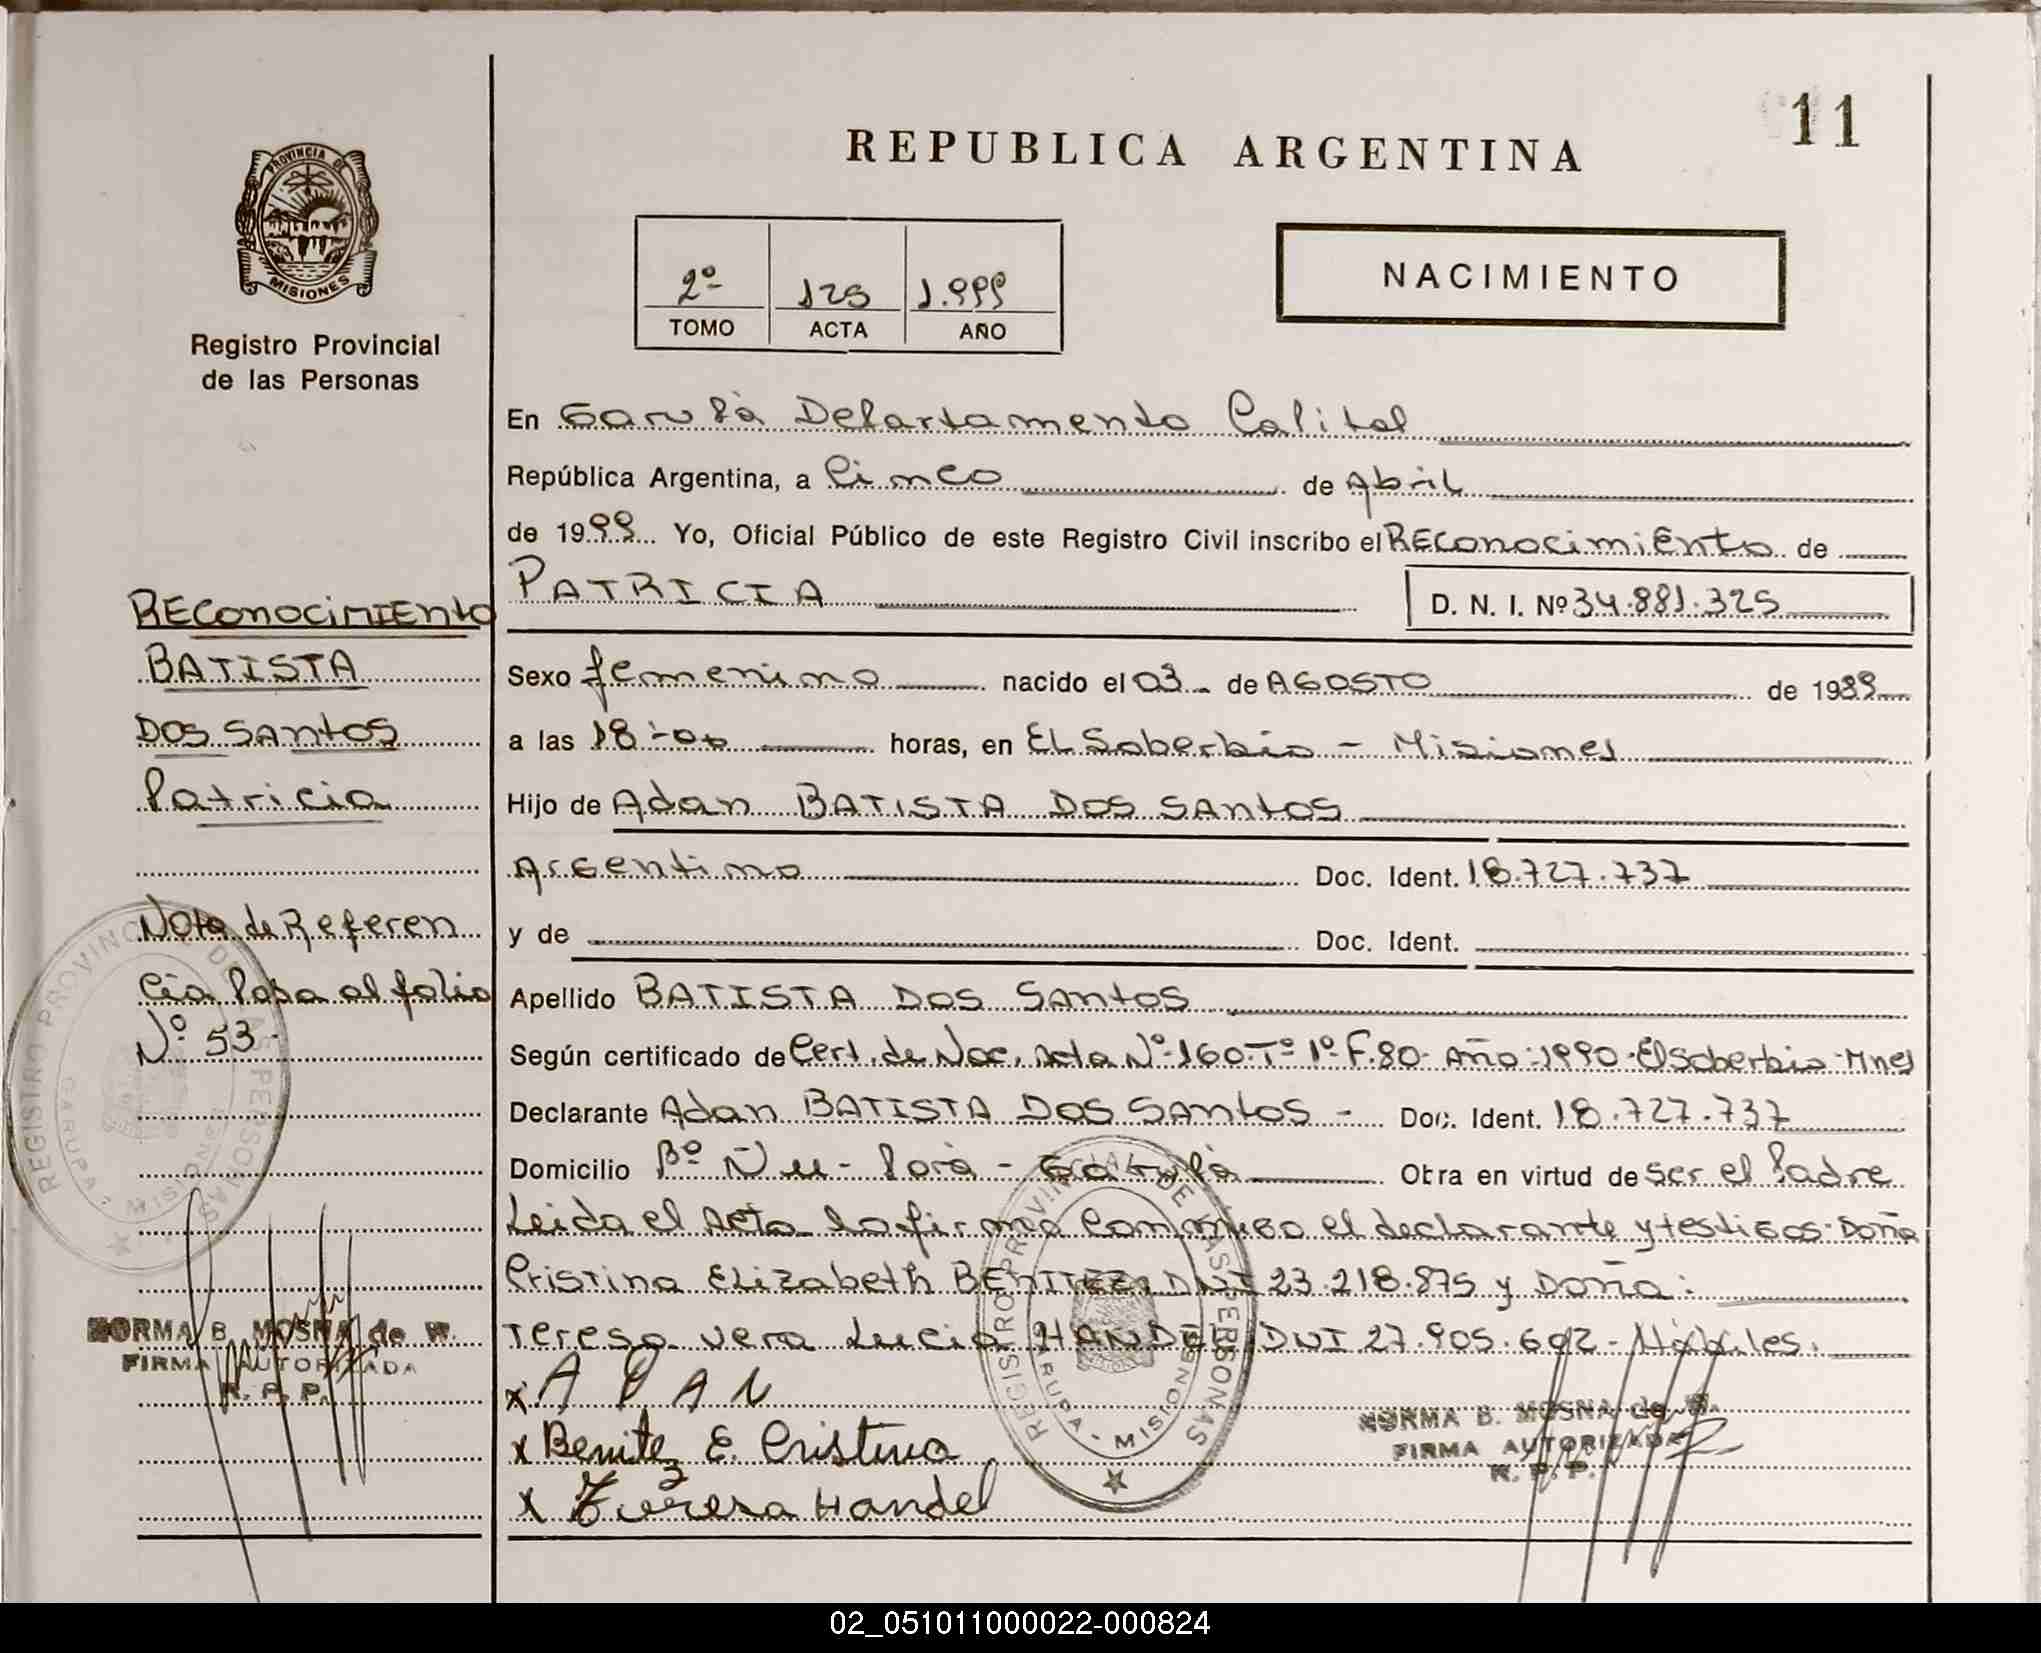 11
REPUBLICA ARGENTINA
PROVINCIA DE
MISIONES
Registro Provincial
de las Personas
2º 125 1.999
TOMO ACTA AÑO
NACIMIENTO
En Garupá Departamento Capital
República Argentina, a Cinco de Abril
de 1999 Yo, Oficial Público de este Registro Civil inscribo el REConocimiEnto de
PATRICIA D. N. I. Nº 34.881.325
Sexo femenino nacido el 03 de AGOSTO de 1989
a las 18:00 horas, en El Soberbio - Misiones
Hijo de Adan BATISTA DOS SANtOS
Argentino Doc. Ident. 18.727.737
y de Doc. Ident.
Apellido BATISTA DOS SANtOS
Según certificado de Cert. de Nac. Acta Nº 160-Tº 1º F.80- Año:1990-El Soberbio-Mnes
Declarante Adan BATISTA DOS SANtOS - Doc. Ident. 18.727.737
Domicilio Bº Ñu-Porá - Garupá Obra en virtud de ser el Padre
Leida el Acta la firma Conmigo el declarante y testigos: Doña
Cristina Elizabeth BENITEZ, DNI 23.218.875 y Doña:
Teresa Vera Lucia HANDEL DNI 27.905.692 - Hábiles.
x ADAN
x Benitez E. Cristina
x Teresa Handel
NORMA B. MOSNA de W.
FIRMA AUTORIZADA
R. P. P.
REGISTRO PROVINCIAL DE LAS PERSONAS
GARUPA - MISIONES
REConocimIEnto
BATISTA
DOS SANtOS
Patricia
Nota de Referen
cia Pasa al folio
Nº 53-
REGISTRO PROVINCIAL DE LAS PERSONAS
GARUPA - MISIONES
NORMA B. MOSNA de W.
FIRMA AUTORIZADA
R. P. P.
02_051011000022-000824